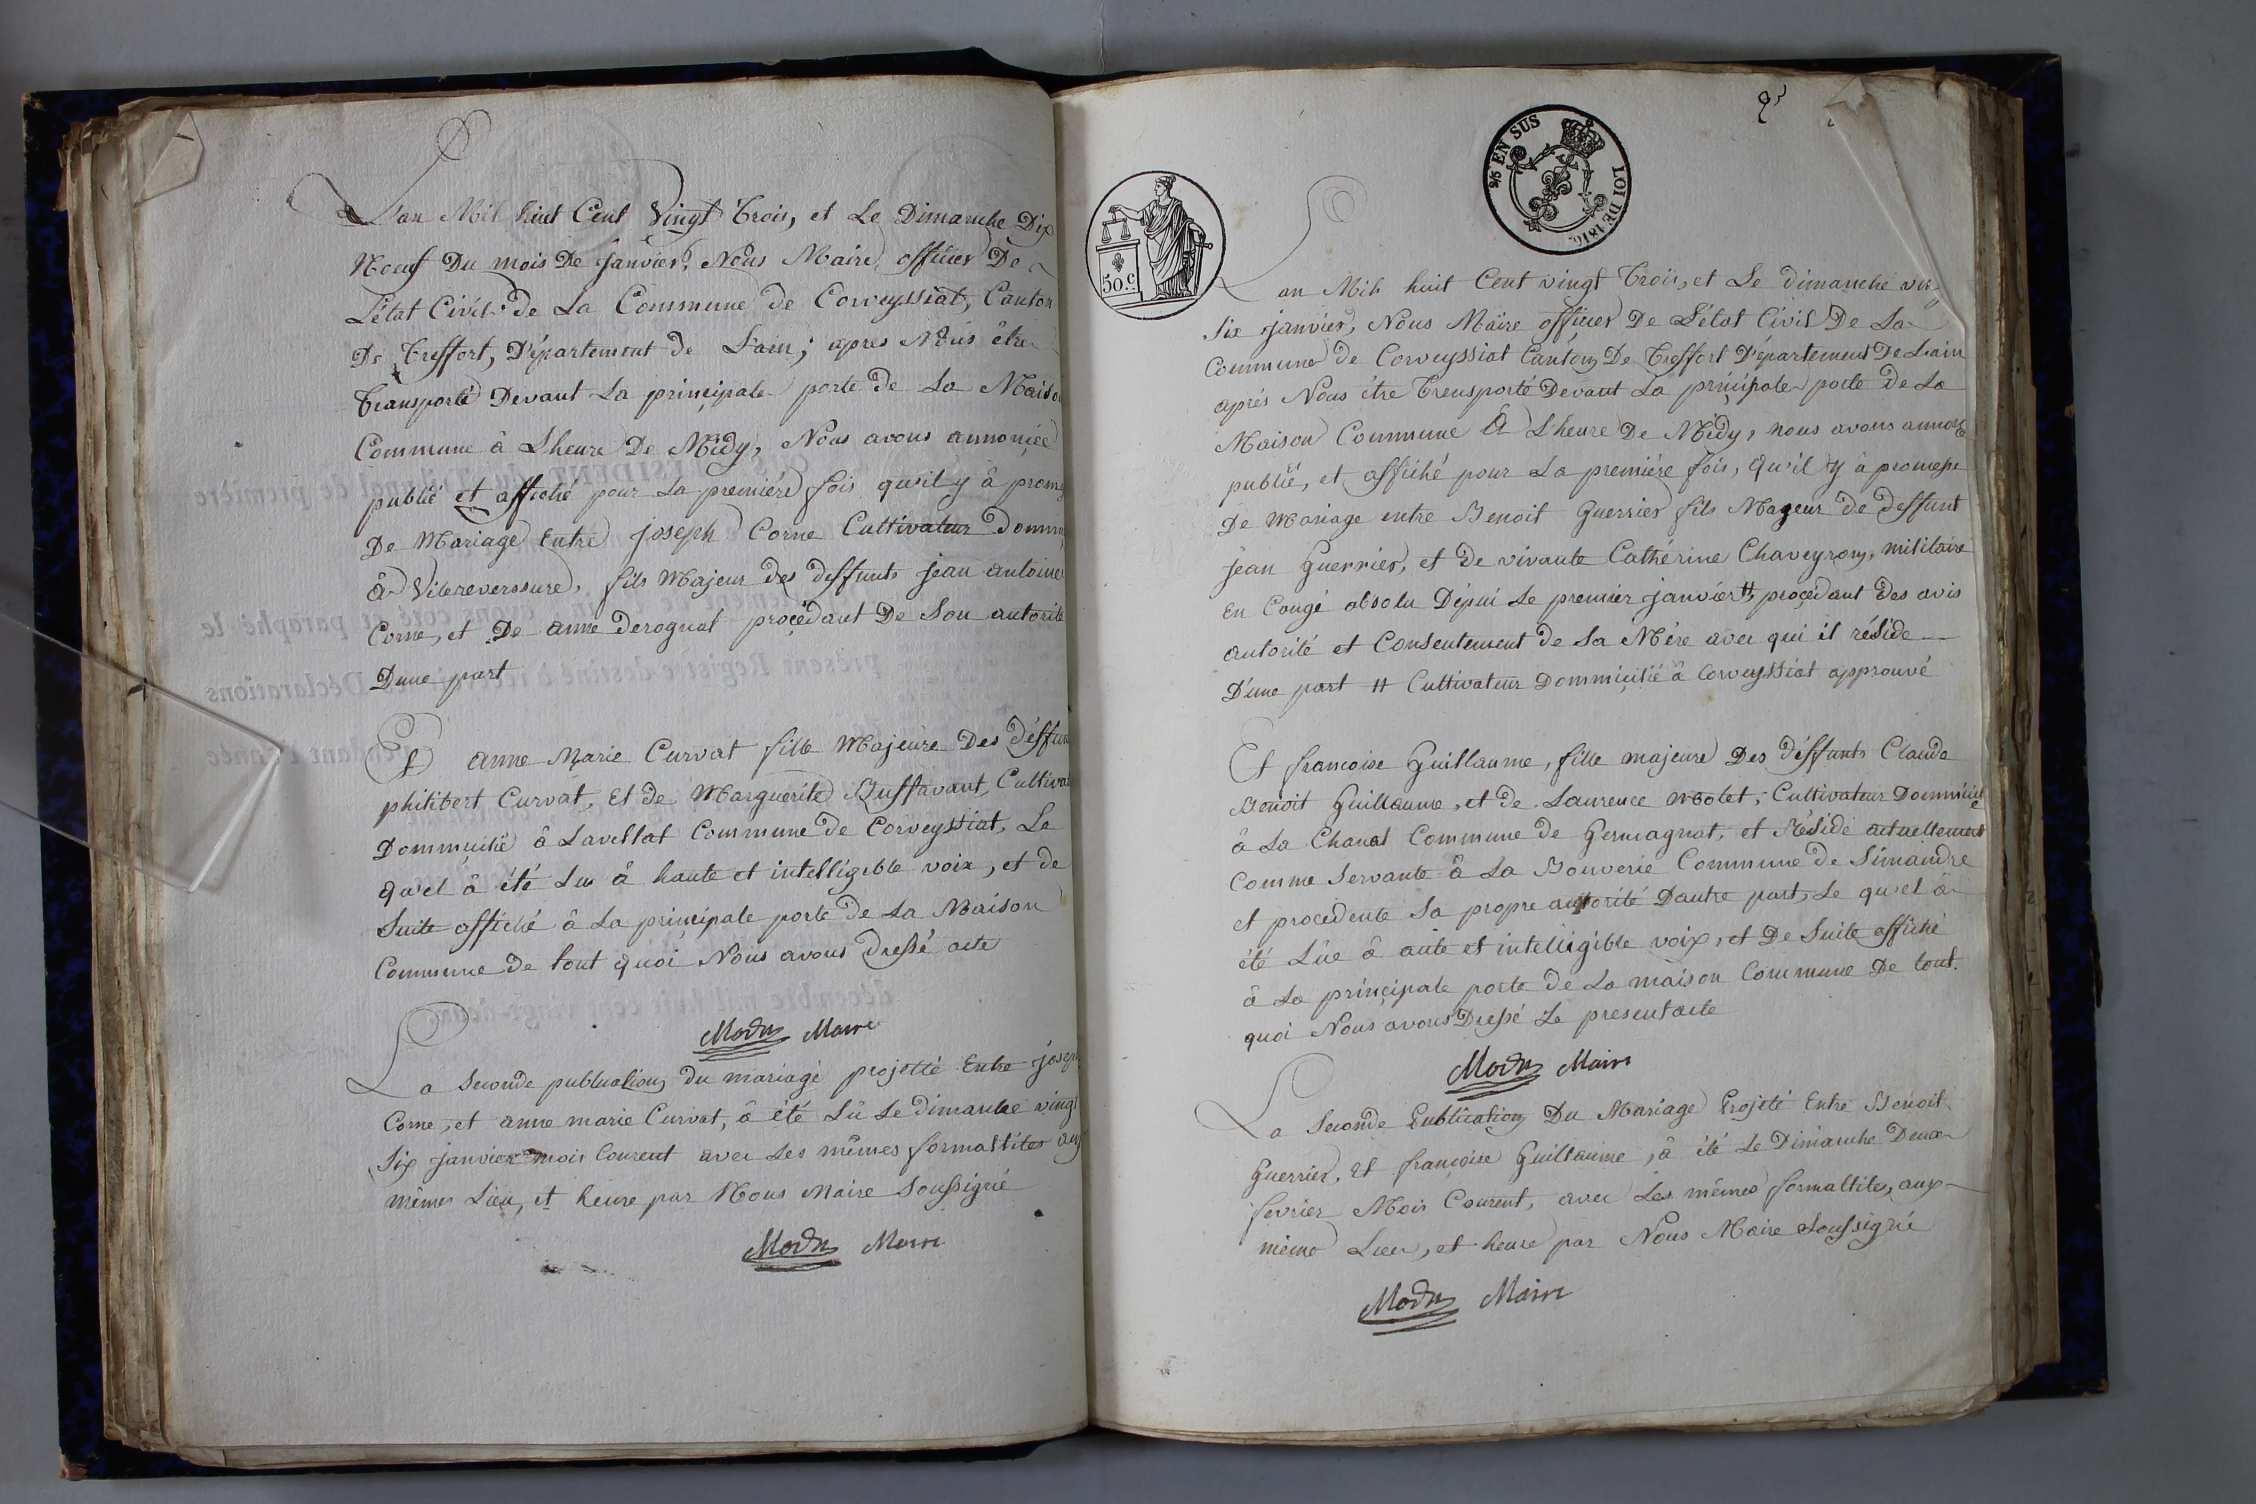 L'an Mil huit Cent Vingt Trois, et Le Dimanche Dix
Neuf Du mois De Janvier, Nous Maire officier De
L'état Civil de La Commune de Corveyssiat, Canton
De Treffort, Département de L'ain; apres Nous être
Transporté Devant La principale porte de La Maison
Commune â L'heure De Midy, Nous avons annonçée
publié et affiché pour La premiére fois qu'il y â prome
De Mariage Entre joseph Corne Cultivateur Dommi
â Vilereverssure, fils Majeur des deffunts jean antoine
Corne, et De anne derognat proçédant De Son autorité
Dune part
Et anne Marie Curvat fille Majeure Des déffun
philibert Curvat, Et de Marguerite Buffavant, Cultiva
Dommiçilié â Lavellat Commune de Corveyssiat, Le
qu'el â été Lu â haute et intelligible voix, et de
Suite affiché â La principale porte de La Maison
Commune de tout quoi Nous avons Dressé acte
Maire
La Seconde publication du mariage projetté Entre josep
Corne, et anne marie Curvat, â été Lû Le dimanche vingt
Six janvier mois Courent avec Les mêmes formallites aux
mêmes Lieu, et heure par Nous Maire Soussigné
Maire
50 c.
2/5 EN SUS
LOI DE 1816.
L'an Mil huit Cent vingt Trois, et Le dimanche vin
Six janvier, Nous Maire officier De L'état Civil De La
Commune de Corveyssiat Canton De Treffort Département De L'ain
aprés Nous être Trensporté Devant La principale porte de La
Maison Commune â L'heure De Midy, nous avons annoncé
publié, et affiché pour La premiére fois, qu'il y â promesse
De Mariage entre Benoit Guerrier fils Mageur de deffunt
jean Guerrier, et de vivante Cathérine Chaveyron, militaire
En Congé absolu Dépui Le premier janvier #, proçédant Des avis
autorité et Consentement de Sa Mére avec qui il réside
D'une part # Cultivateur Dommiçilié â Corveyssiat approuvé
Et francoise Guillaume, fille majeure Des déffunts Claude
Benoit Guillaume, et de Laurence Molet, Cultivateur Dommicilié
â La Chanal Commune de Germagnat, et Réside actuellement
Comme Servante â La Bouverie Commune de Simandre
et procedente Sa propre autorité Dautre part, Le qu'el â
été Lûe â aute et intelligible voix, et De Suite affiché
â La principale porte de La maison Commune De tout
quoi Nous avons Dressé Le present acte
Maire
La Seconde Publication Du Mariage Projeté Entre Benoit
Guerrier, et françoise Guillaume, â été Le Dimanche Deux
fevrier Mois Courent, avec Les mêmes formallites, aux
même Lieu, et heure par Nous Maire Soussigné
Maire